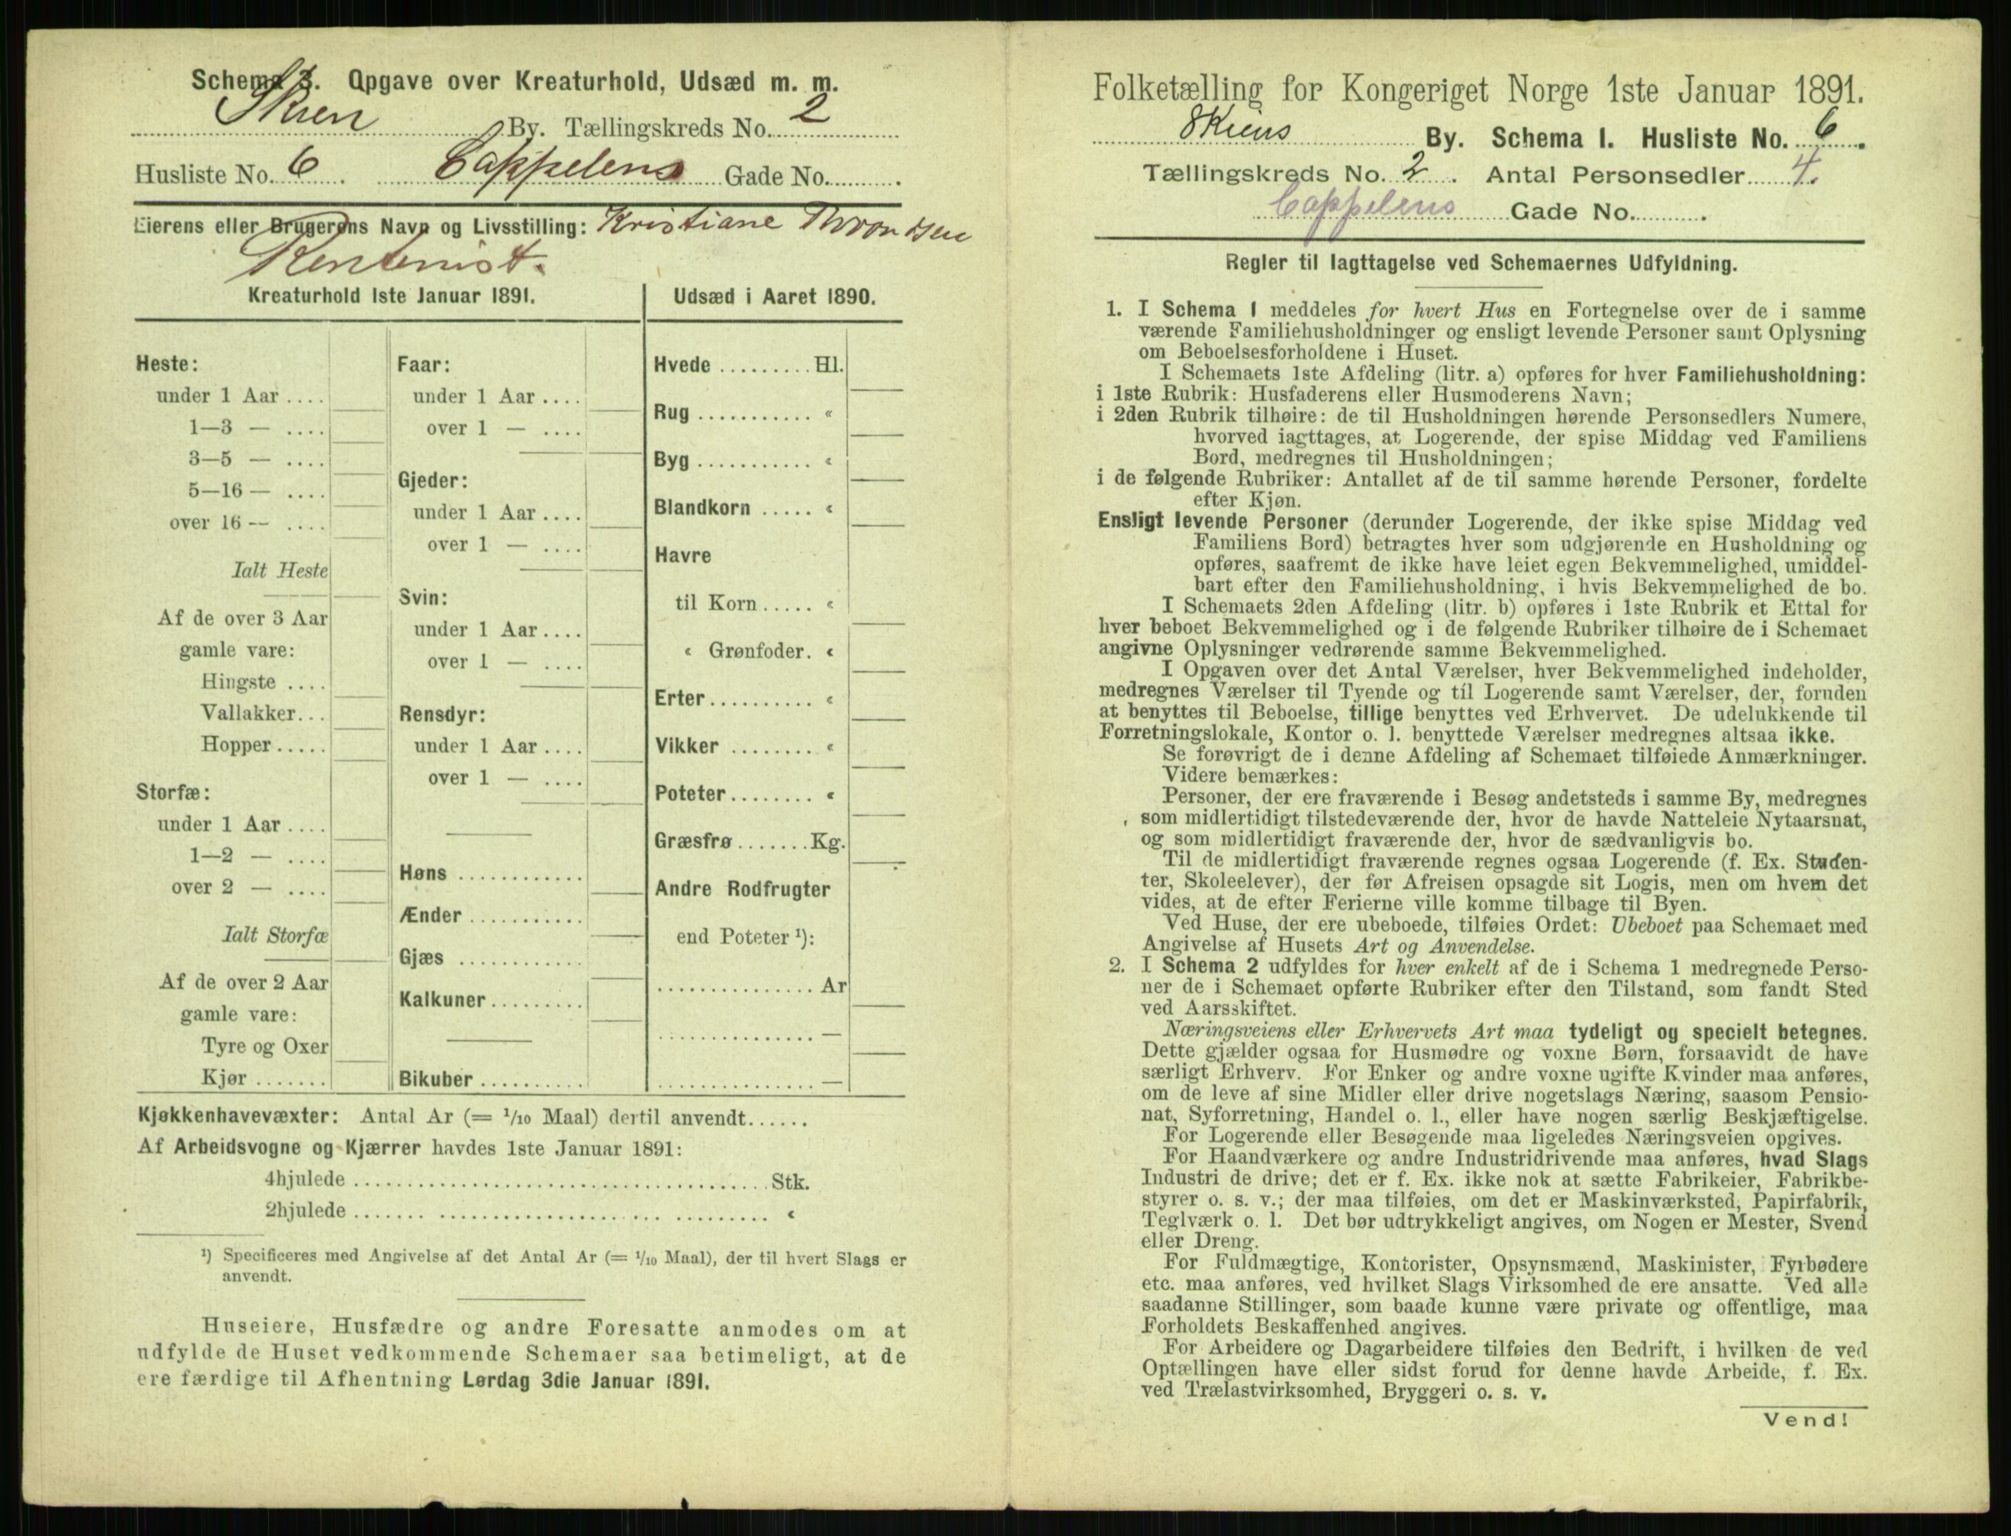 Schema 3. Opgave over Kreaturhold, Udsæd m. m.
Skien By. Tællingskreds No. 2
Husliste No. 6. Cappelens Gade No.
Eierens eller Brugerens Navn og Livsstilling: Kristiane Throndsen
Rentenist.
Kreaturhold 1ste Januar 1891.
Heste:
under 1 Aar ....
1—3 — ....
3—5 — ....
5—16 — ....
over 16 — ....
Ialt Heste
Af de over 3 Aar
gamle vare:
Hingste ....
Vallakker...
Hopper.....
Storfæ:
under 1 Aar ....
1—2 — ....
over 2 — ....
Ialt Storfæ
Af de over 2 Aar
gamle vare:
Tyre og Oxer
Kjør.......
Faar:
under 1 Aar ....
over 1 — ....
Gjeder:
under 1 Aar ....
over 1 — ....
Svin:
under 1 Aar ....
over 1 — ....
Rensdyr:
under 1 Aar ....
over 1 — ....
Høns ............
Ænder ...........
Gjæs ............
Kalkuner.........
Bikuber ..........
Udsæd i Aaret 1890.
Hvede .........Hl.
Rug ........... «
Byg ........... «
Blandkorn ..... «
Havre
til Korn..... «
« Grønfoder. «
Erter.......... «
Vikker ........ «
Poteter........ «
Græsfrø.......Kg.
Andre Rodfrugter
end Poteter ¹):
...............Ar
............... —
...............—
Kjøkkenhavevæxter: Antal Ar (= 1/10 Maal) dertil anvendt......
Af Arbeidsvogne og Kjærrer havdes 1ste Januar 1891:
4hjulede .......................................Stk.
2hjulede ....................................... «
¹) Specificeres med Angivelse af det Antal Ar (= 1/10 Maal), der til hvert Slags er
anvendt.
Huseiere, Husfædre og andre Foresatte anmodes om at
udfylde de Huset vedkommende Schemaer saa betimeligt, at de
ere færdige til Afhentning Lørdag 3die Januar 1891.
Folketælling for Kongeriget Norge 1ste Januar 1891.
Skiens By. Schema I. Husliste No. 6.
Tællingskreds No. 2. Antal Personsedler 4.
Cappelens Gade No.
Regler til Iagttagelse ved Schemaernes Udfyldning.
1. I Schema 1 meddeles for hvert Hus en Fortegnelse over de i samme
værende Familiehusholdninger og ensligt levende Personer samt Oplysning
om Beboelsesforholdene i Huset.
I Schemaets 1ste Afdeling (litr. a) opføres for hver Familiehusholdning:
i 1ste Rubrik: Husfaderens eller Husmoderens Navn;
i 2den Rubrik tilhøire: de til Husholdningen hørende Personsedlers Numere,
hvorved iagttages, at Logerende, der spise Middag ved Familiens
Bord, medregnes til Husholdningen;
i de følgende Rubriker: Antallet af de til samme hørende Personer, fordelte
efter Kjøn.
Ensligt levende Personer (derunder Logerende, der ikke spise Middag ved
Familiens Bord) betragtes hver som udgjørende en Husholdning og
opføres, saafremt de ikke have leiet egen Bekvemmelighed, umiddel-
bart efter den Familiehusholdning, i hvis Bekvemmelighed de bo.
I Schemaets 2den Afdeling (litr. b) opføres i 1ste Rubrik et Ettal for
hver beboet Bekvemmelighed og i de følgende Rubriker tilhøire de i Schemaet
angivne Oplysninger vedrørende samme Bekvemmelighed.
I Opgaven over det Antal Værelser, hver Bekvemmelighed indeholder,
medregnes Værelser til Tyende og til Logerende samt Værelser, der, foruden
at benyttes til Beboelse, tillige benyttes ved Erhvervet. De udelukkende til
Forretningslokale, Kontor o. l. benyttede Værelser medregnes altsaa ikke.
Se forøvrigt de i denne Afdeling af Schemaet tilføiede Anmærkninger.
Videre bemærkes:
Personer, der ere fraværende i Besøg andetsteds i samme By, medregnes
som midlertidigt tilstedeværende der, hvor de havde Natteleie Nytaarsnat,
og som midlertidigt fraværende der, hvor de sædvanligvis bo.
Til de midlertidigt fraværende regnes ogsaa Logerende (f. Ex. Studen-
ter, Skoleelever), der før Afreisen opsagde sit Logis, men om hvem det
vides, at de efter Ferierne ville komme tilbage til Byen.
Ved Huse, der ere ubeboede, tilføies Ordet: Ubeboet paa Schemaet med
Angivelse af Husets Art og Anvendelse.
2. I Schema 2 udfyldes for hver enkelt af de i Schema 1 medregnede Perso-
ner de i Schemaet opførte Rubriker efter den Tilstand, som fandt Sted
ved Aarsskiftet.
Næringsveiens eller Erhvervets Art maa tydeligt og specielt betegnes.
Dette gjælder ogsaa for Husmødre og voxne Børn, forsaavidt de have
særligt Erhverv. For Enker og andre voxne ugifte Kvinder maa anføres,
om de leve af sine Midler eller drive nogetslags Næring, saasom Pensio-
nat, Syforretning, Handel o. l., eller have nogen særlig Beskjæftigelse.
For Logerende eller Besøgende maa ligeledes Næringsveien opgives.
For Haandværkere og andre Industridrivende maa anføres, hvad Slags
Industri de drive; det er f. Ex. ikke nok at sætte Fabrikeier, Fabrikbe-
styrer o. s. v.; der maa tilføies, om det er Maskinværksted, Papirfabrik,
Teglværk o. l. Det bør udtrykkeligt angives, om Nogen er Mester, Svend
eller Dreng.
For Fuldmægtige, Kontorister, Opsynsmænd, Maskinister, Fyrbødere
etc. maa anføres, ved hvilket Slags Virksomhed de ere ansatte. Ved alle
saadanne Stillinger, som baade kunne være private og offentlige, maa
Forholdets Beskaffenhed angives.
For Arbeidere og Dagarbeidere tilføies den Bedrift, i hvilken de ved
Optællingen have eller sidst forud for denne havde Arbeide, f. Ex.
ved Trælastvirksomhed, Bryggeri o. s. v.
Vend!